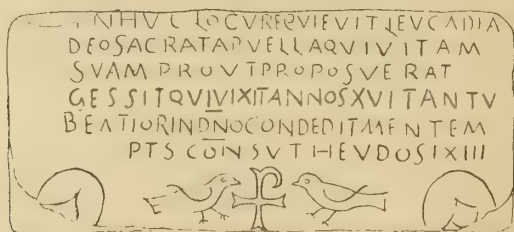 IN HVC LOCV REQVIEVIT LEVCADIA
DEO SACRATA PVELLA QVI VITAM
SVAM PROVT PROPOSVERAT
GESSIT QVI VIXIT ANNOS XVI TANTV
BEATIOR IN DNO CONDEDIT MENTEM
PTS CONSV THEVDOSI XIII